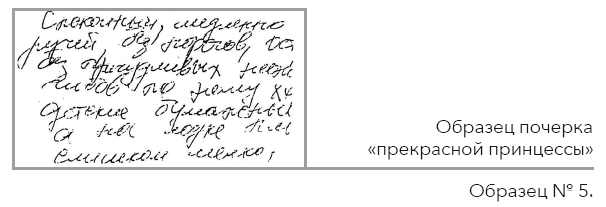 Спокойный, медленно
ручей, без порогов,
без причудливых
чтобы по нему
детские бумажны
а на лодке
слишком мелко,
Образец почерка
«прекрасной принцессы»
Образец № 5.